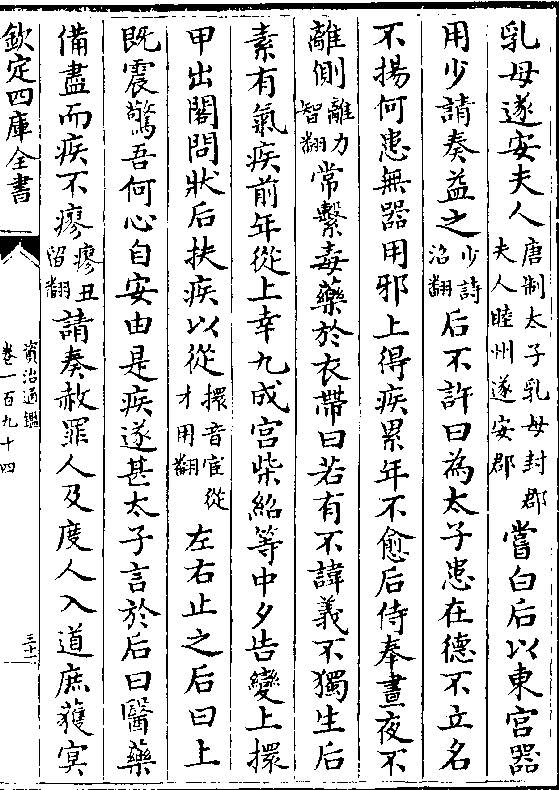 乳母遂安夫人唐制太子乳母封郡夫人睦州遂安郡嘗白后以東宫器
用少請奏益之少詩沼翻后不許曰為太子患在德不立名
不揚何患無器用邪上得疾累年不愈后侍奉晝夜不
離側離力智翻常繫毒藥於衣帶曰若有不諱義不獨生后
素有氣疾前年從上幸九成宫柴紹等中夕告變上擐
甲出閤問狀后扶疾以從擐音宦從才用翻左右止之后曰上
既震驚吾何心自安由是疾遂甚太子言於后曰醫藥
備盡而疾不瘳瘳丑留翻請奏赦罪人及度人入道庶獲冥
欽定四庫全書
資治通鑑
卷一百九十四